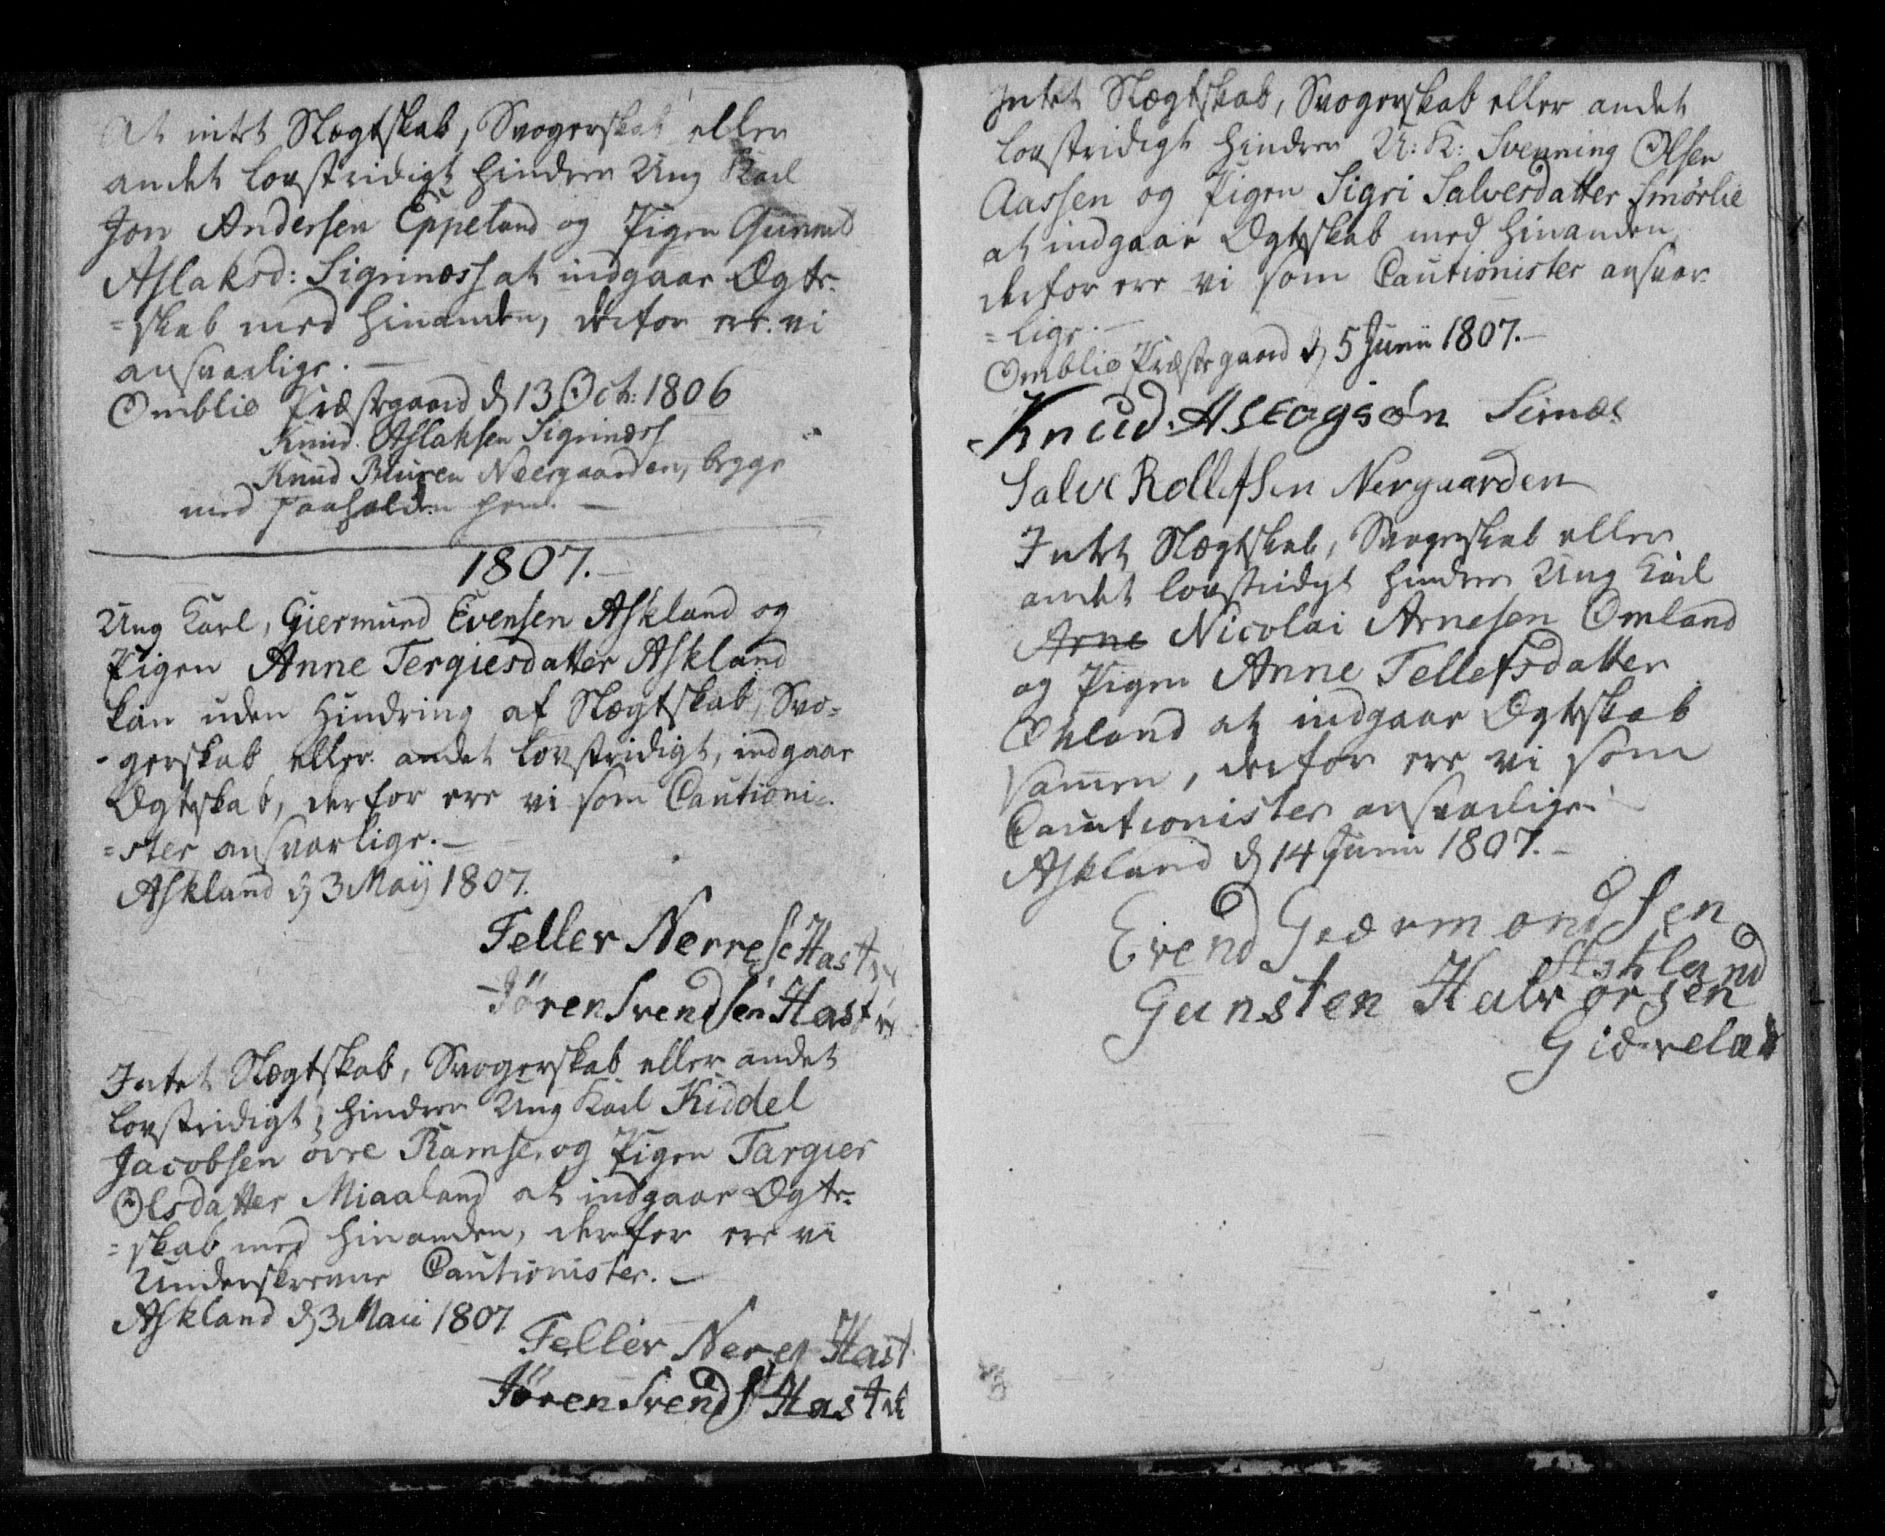 At intet Slægtskab, Svogerskab eller
andet lovstridigt hindrer Ung Karl
Jon Andersen Eppeland og Pigen Gunnild
Aslaksd: Sigrinæss at indgaae Ægte-
=skab med hinanden, derfor ere vi
ansvarlige. —
Omblie Præstegaard d 13 Oct: 1806
Knud Aslaksen Sigrinæss
Knud Neergaarden, begge
med paaholden Pen. —
1807. —
Ung Karl, Giermund Evensen Askland og
Pigen Anne Tergiesdatter Askland
kan uden Hindring af Slægtskab, Svo-
-gerskab eller andet lovstridigt, indgaae
Ægteskab, derfor ere vi som Cautioni-
=ster ansvarlige. —
Askland d 3 Maij 1807.
Teller
Jören Svendsen
Intet Slægtskab, Svogerskab eller andet
lovstridigt, hindrer Ung Karl Kiddel
Jacobsen övre Ramse, og Pigen Targier
Olsdatter Miaaland at indgaae Ægte-
=skab med hinanden, derfor ere vi
Underskrevne Cautionister. —
Askland d 3 Maii 1807
Teller
Jören Svends
Intet Slægtskab, Svogerskab eller andet
lovstridigt hindrer U: K: Svenning Olsen
Aassen og Pigen Sigri Salvesdatter Smörlie
at indgaae Ægteskab med hinanden,
derfor ere vi som Cautionister ansvar-
=lige. —
Omblie Præstegaard d 5 Junii 1807. —
Knud Aslagsön
Salve Rollefsen Nergaarden
Intet Slægtskab, Svogerskab eller
andet lovstridigt hindrer Ung Karl
Arne Nicolai Arnesen Omland
og Pigen Anne Tellefsdatter
at indgaae Ægteskab
samen, derfor ere vi som
Cautionister ansvarlige. —
Askland d 14 Junii 1807. —
Evend Gedermondsen
Askland
Gunsten Halvorsen